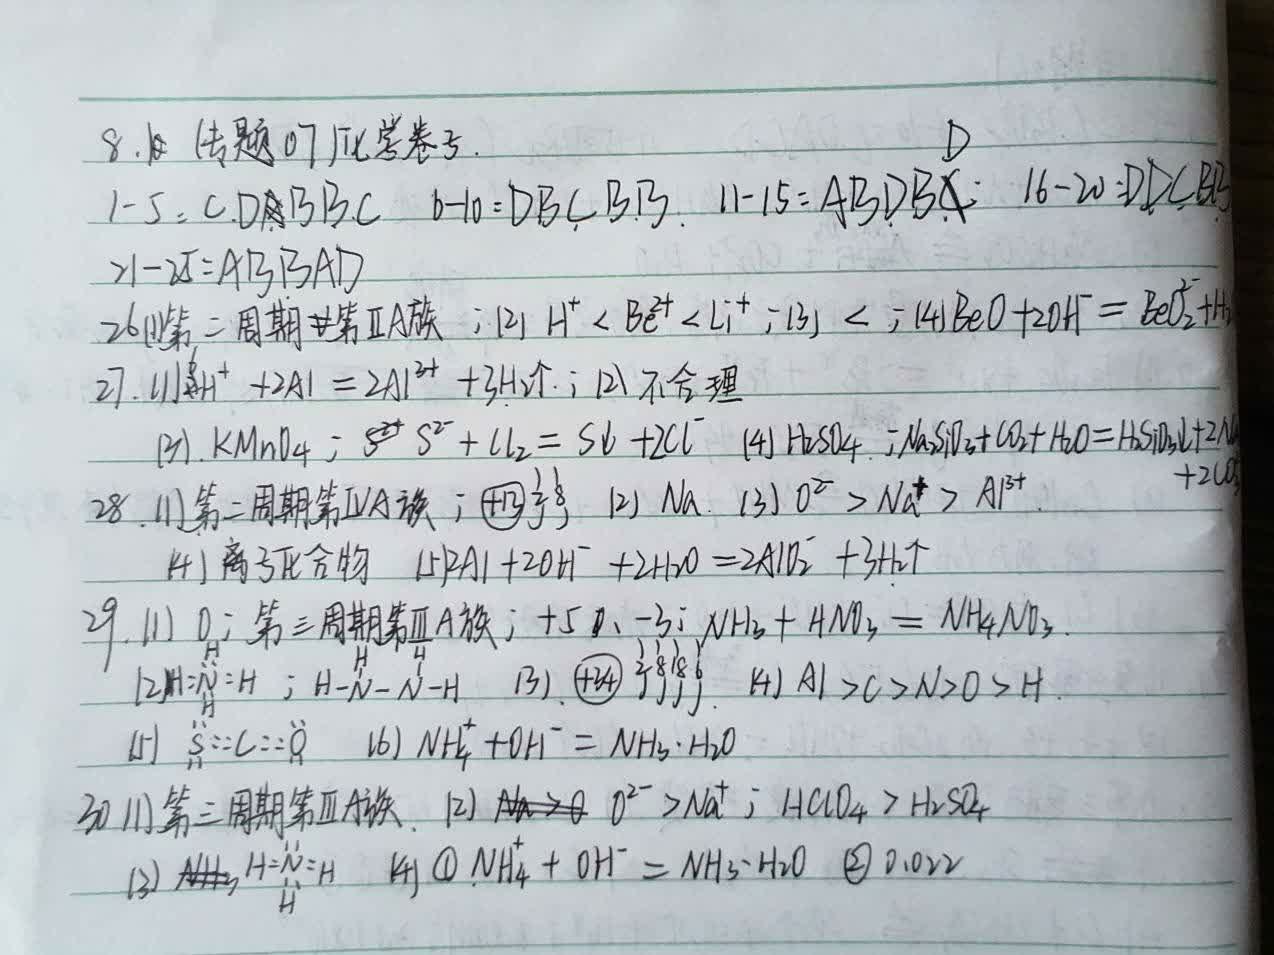 8. (专题07)化学卷子.
D
1-5=C.DBBC 6-10=DBCBB. 11-15=ABDBC; 16-20=DDCBB
21-25=ABBAD
26(1)第二周期第ⅡA族;(2) H⁺<Be²⁺<Li⁺;(3) <;(4)BeO+2OH⁻=BeO₂²⁻+H₂
27.(1)6H⁺+2Al=2Al³⁺+3H₂↑.;(2)不合理
(3).KMnO₄; S²⁻+Cl₂=S↓+2Cl⁻ (4)H₂SO₄.;Na₂SiO₃+CO₂+H₂O=H₂SiO₃↓+2Na
+2CO₃
28.(1)第三周期第ⅣA族; +13 2 8 (2) Na. (3) O²⁻>Na⁺>Al³⁺.
(4)离子化合物 (5)2Al+2OH⁻+2H₂O=2AlO₂⁻+3H₂↑
29.(1) O;第三周期第ⅢA族;+5、-3;NH₃+HNO₃=NH₄NO₃.
H H H
(2)H:N:H ; H-N-N-H (3). +34 2 8 18 6 (4) Al>C>N>O>H.
H
(5) S::C::O (6) NH₄⁺+OH⁻=NH₃·H₂O
30(1)第三周期第ⅢA族. (2) O²⁻>Na⁺; HClO₄>H₂SO₄
(3) H:N:H (4) ① NH₄⁺+OH⁻=NH₃·H₂O ② 0.022
H